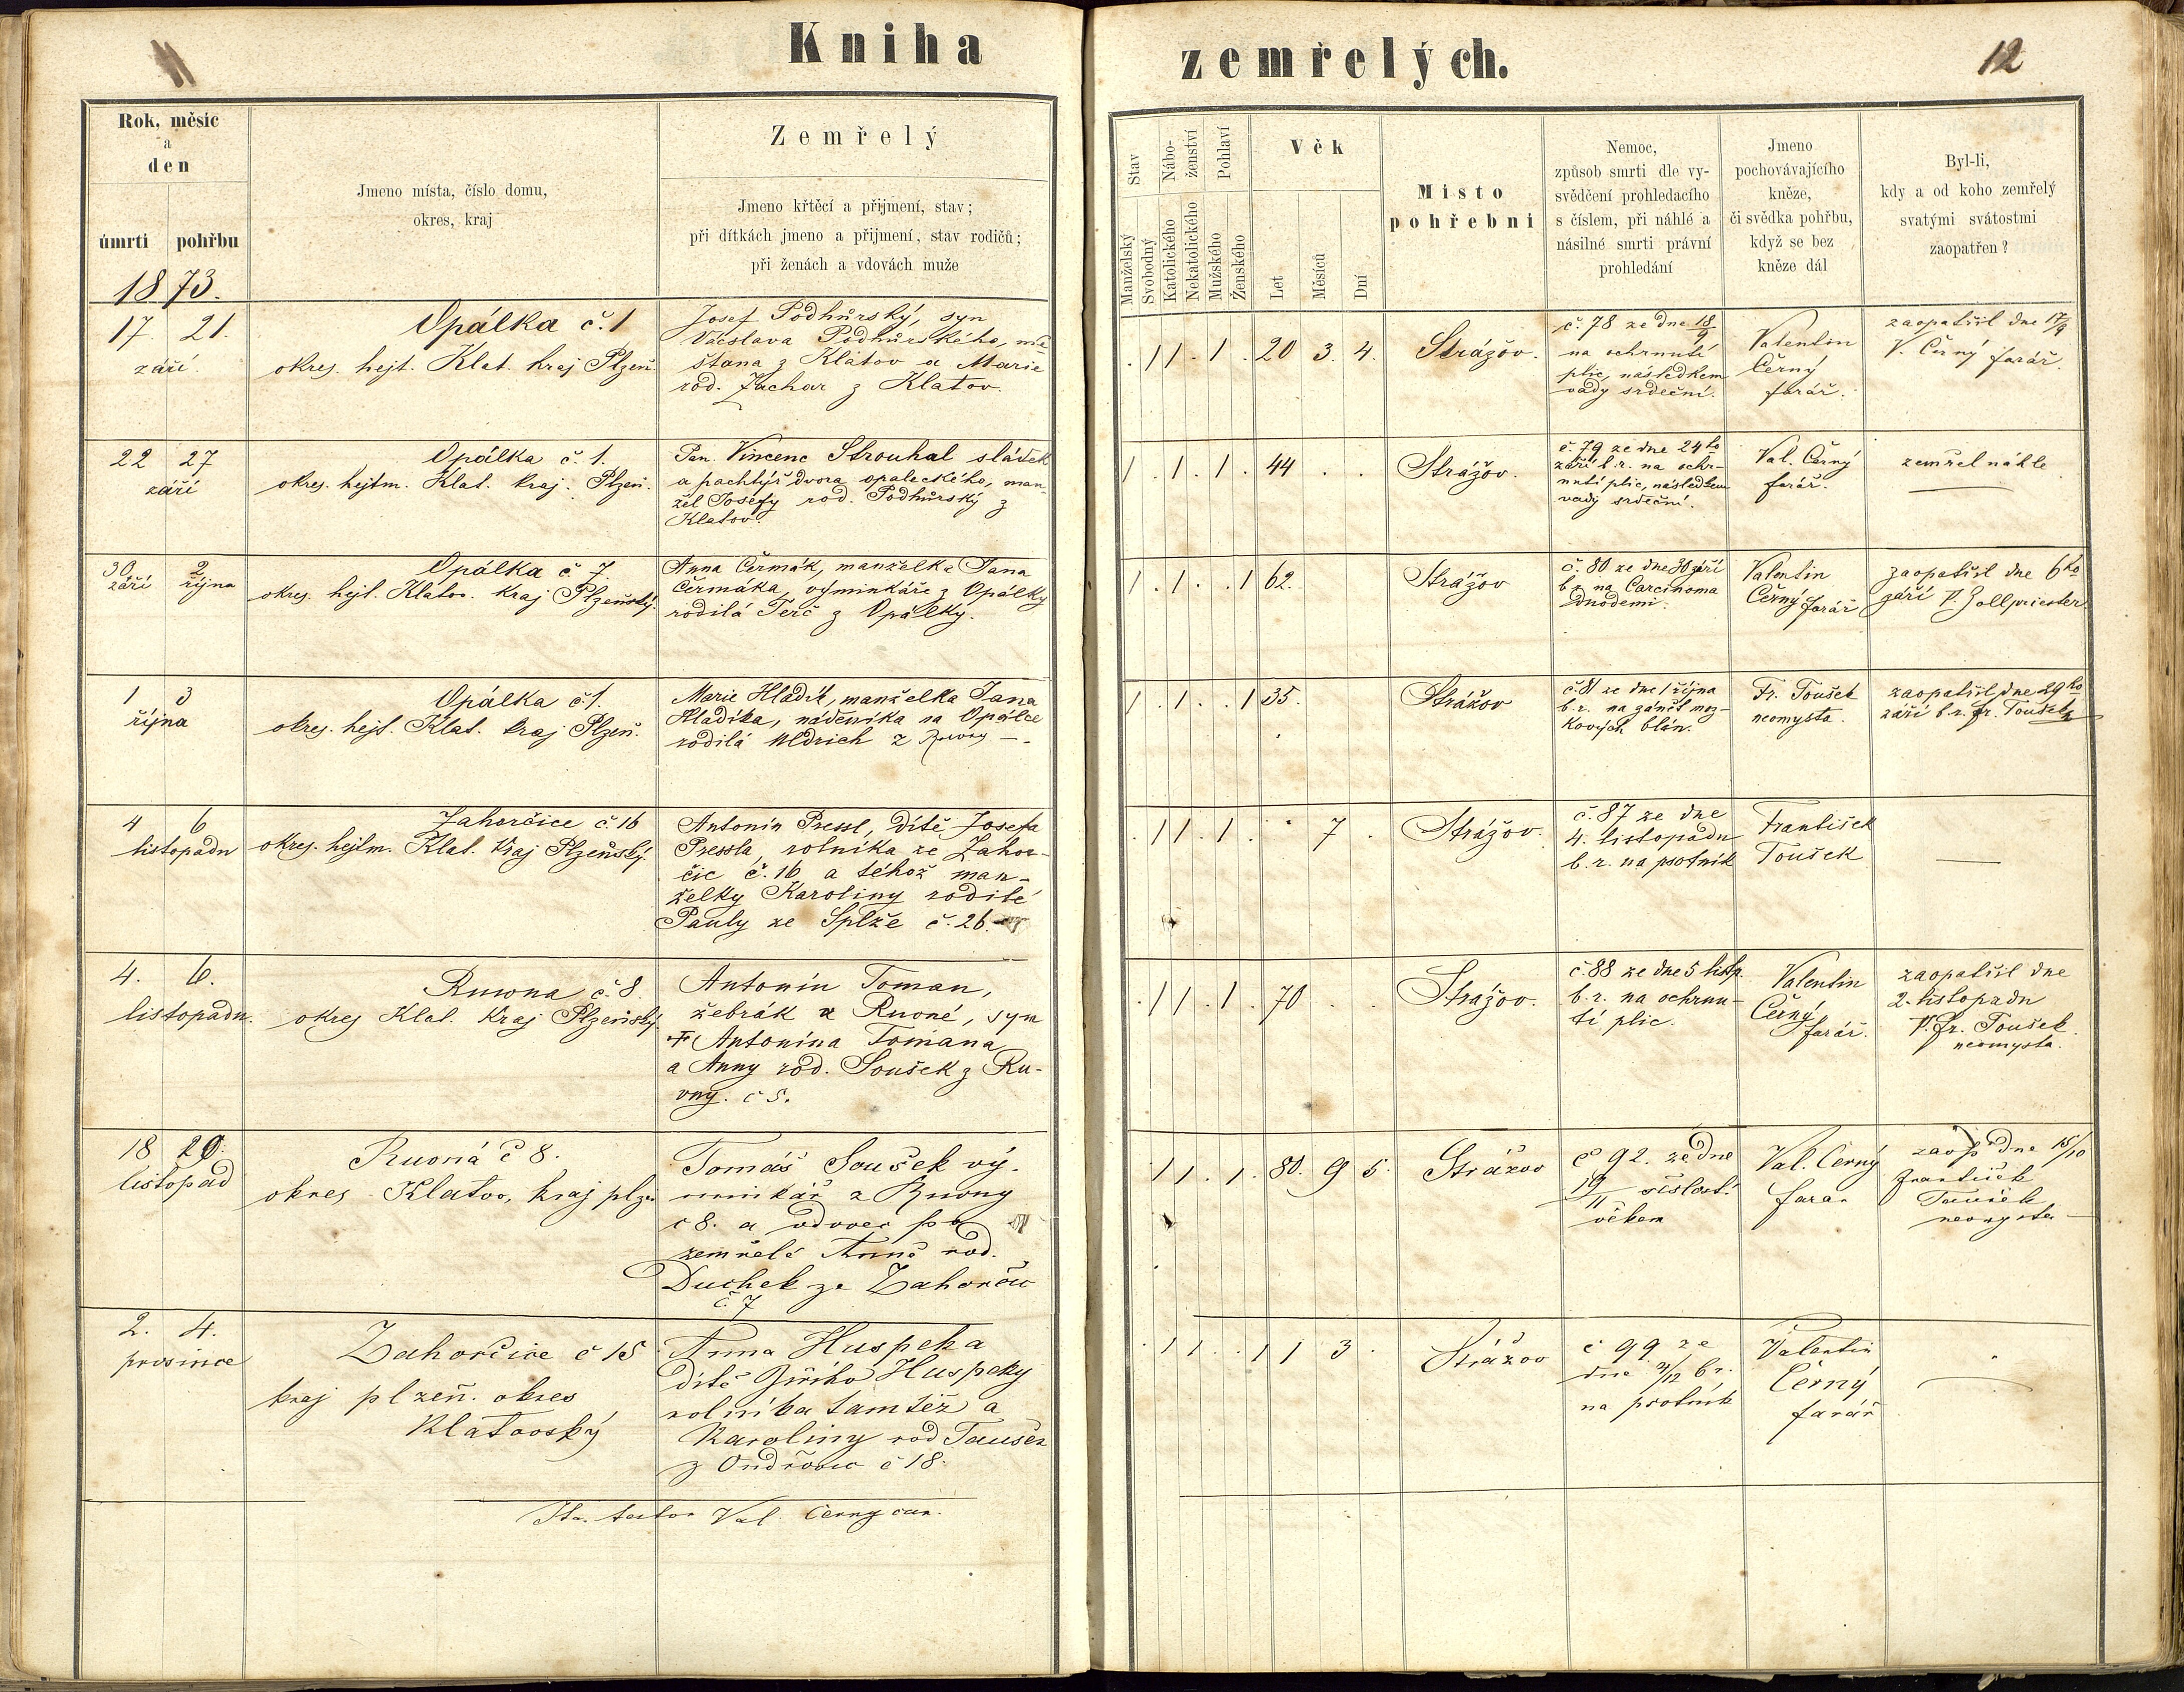 11
Kniha
Rok, měsíc
a
den
úmrtí pohřbu
Jmeno místa, číslo domu,
okres, kraj
Zemřelý
Jmeno křtěcí a přijmení, stav;
při dítkách jmeno a přijmení, stav rodičů;
při ženách a vdovách muže
1873.
17. 21.
září.
Opálka č. 1
okres. hejt. Klat. kraj Plzeň.
Josef Podhůrský, syn
Václava Podhůrského, mě-
štana z Klatov a Marie
rod. Zachar z Klatov.
22 27
září
Opálka č. 1.
okres. hejtm. Klat. kraj. Plzeň.
Pan. Vincenc Strouhal sládek
a pachtýř dvora opaleckého, man-
žel Josefy rod. Podhůrský z
Klatov.
30. 2
září října
Opálka č. 7.
okres. hejt. Klatov. Kraj Plzeňský.
Anna Čermák, manželka Jana
Čermáka, výminkáře z Opálky
rodilá Terč z Opálky.
1 3
října
Opálka č. 1.
okres. hejt. Klat. kraj Plzeň.
Marie Hladík, manželka Jana
Hladíka, nádeníka na Opálce
rodilá Uldrich z Rovny —.
4 6
listopadu
Zahorčice č. 16
okres. hejtm. Klat. Kraj Plzeňský.
Antonín Pressl, dítě Josefa
Pressla, rolníka ze Zahor-
čic č. 16 a téhož man-
želky Karoliny rodilé
Pauly ze Splže č. 26.
4. 6.
listopadu.
Ruwna č. 8.
okres Klat. Kraj Plzeňský.
Antonín Toman,
žebrák z Ruvné, syn
✝ Antonína Tomana
a Anny rod. Soušek z Ru-
vny. č 5.
18 20.
listopad
Ruvná č 8.
okres Klatov, kraj plzen
Tomáš Soušek vý-
minkář z Ruvny
č 8. a vdovec po
zemřelé Anně rod.
Duchek ze Zahorčic
č. 7
2. 4.
prosince
Zahorčice č 15
kraj plzeň. okres
Klatovský
Anna Huspeka
dítě Jiřího Huspeky
rolníka tamtéž a
Karoliny rod Taušek
z Ondřovic č 18.
Ita testor Val. Černy cur.
zemřelých.
12
Stav
Nábo-
ženství
Pohlaví
Manželský
Svobodný
Katolického
Nekatolického
Mužského
Ženského
Věk
Let
Měsíců
Dní
Místo
pohřební
Nemoc,
způsob smrti dle vy-
svědčení prohledacího
s číslem, při náhlé a
násilné smrti právní
prohledání
Jmeno
pochovávajícího
kněze,
či svědka pohřbu,
když se bez
kněze dál
Byl-li,
kdy a od koho zemřelý
svatými svátostmi
zaopatřen?
. 1 1 . 1 . 20 3. 4. Strážov.
č. 78 ze dne 18/9
na ochrnutí
plic, následkem
vady srdeční.
Valentin
Černý
farář.
zaopatřil dne 17/9
V. Černý farář.
1 . 1 . 1 . 44 . . Strážov.
č. 79 ze dne 24ho
září b.r. na ochr-
nutí plic, následkem
vady srdeční.
Val. Černý
farář.
zemřel náhle
1 . 1 . . 1 62. Strážov
č. 80 ze dne 30 září
b.r. na Carcinoma
Duodemi.
Valentin
Černý farář
zaopatřil dne 6ho
září P. Zollpriester
1 . 1 . . 1 35. Strážov
č. 81 ze dne 1 října
b.r. na zánět moz-
kových blán.
Fr. Toušek
neomysta.
zaopatřil dne 29ho
září b.r. Fr. Toušek
. 1 1 . 1 . . 7 . Strážov.
č. 87 ze dne
4. listopadu
b.r. na psotník
František
Toušek
—
. 1 1 . 1 . 70 . . Strážov.
č. 88 ze dne 5 listp.
b.r. na ochrnu-
tí plic.
Valentin
Černý
farář.
zaopatřil dne
2. listopadu
P. Fr. Toušek.
neomysta.
. 1 1 . 1 . 80. 9 5. Strážov
č 92. ze dne
19/11 sešlostí
věkem
Val. Černý
farar
zaop dne 15/10
František
Toušek
neomysta
. 1 1 . . 1 1 3 . Strážov
č 99 ze
dne 3/12 b r.
na psotník
Valentin
Černý
farář